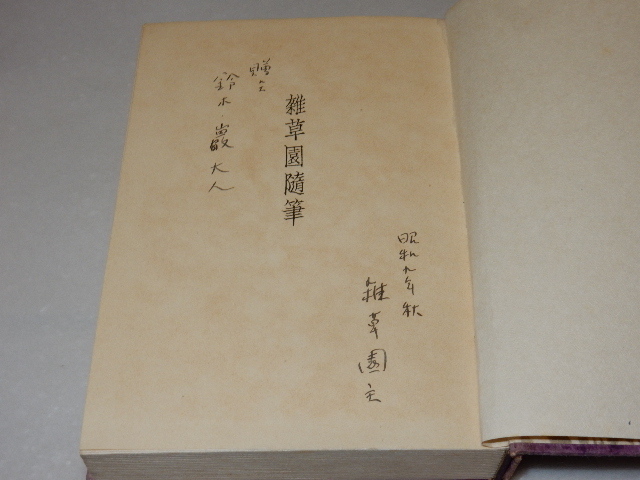 昭和九年秋
雑草園主
雜草園隨筆
贈呈
鈴木巖大人